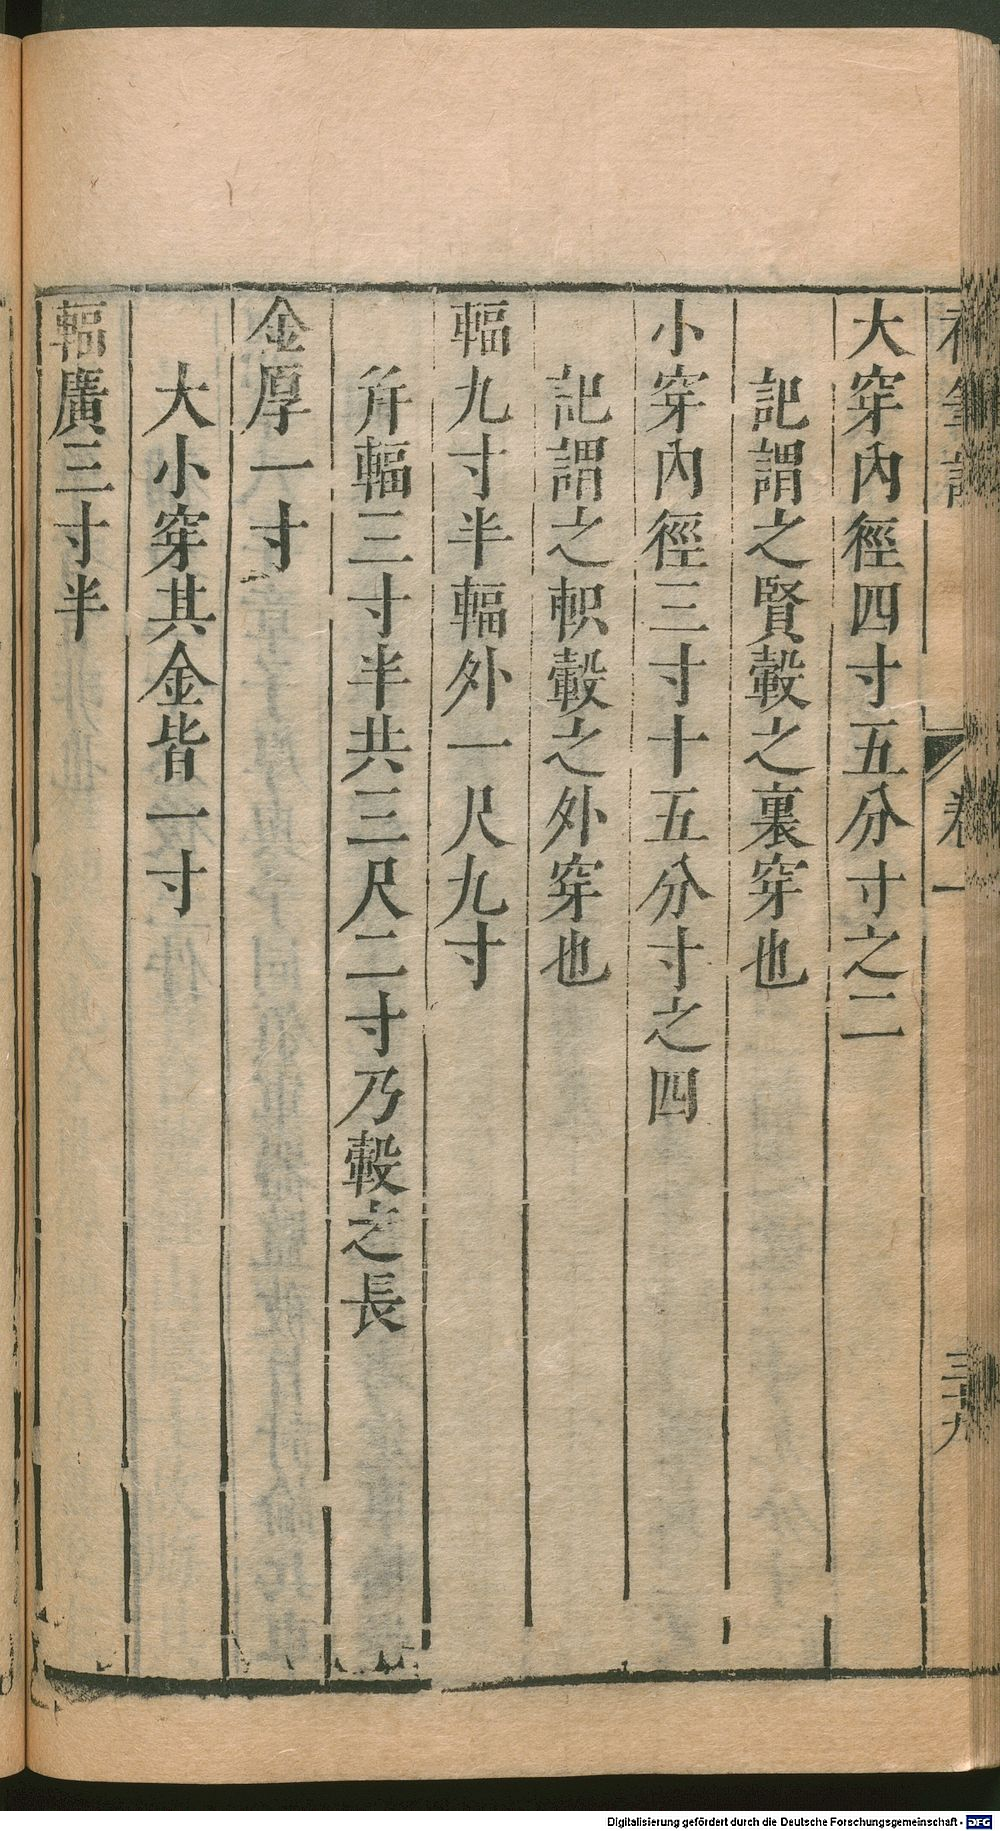 大穿內徑四寸五分寸之二
記謂之賢轂之裏穿也
小穿內徑三寸十五分寸之四
記謂之軹轂之外穿也
輻九寸半輻外一尺九寸
并輻三寸半共三尺二寸乃轂之長
金厚一寸
大小穿其金皆一寸
輻廣三寸半
卷一
三十九
Digitalisierung gefördert durch die Deutsche Forschungsgemeinschaft - DFG